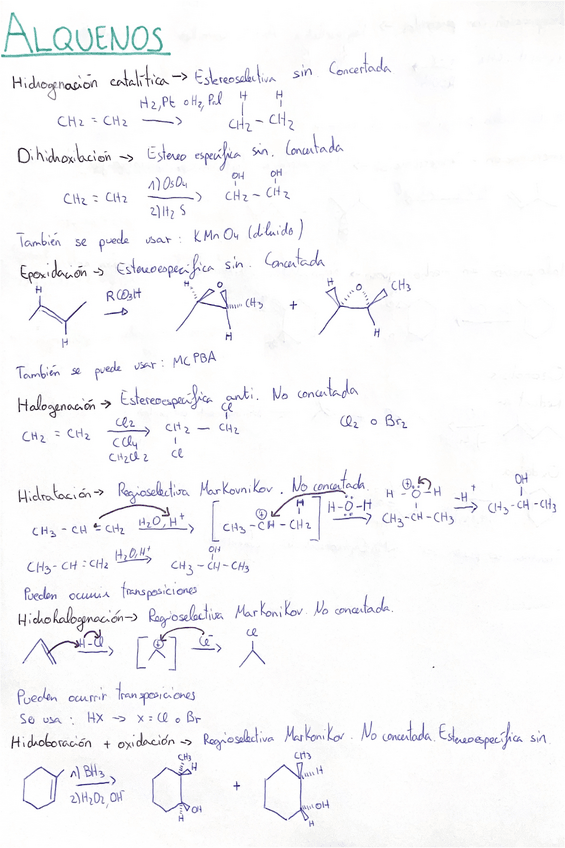 ALQUENOS
Hidrogenación catalítica → Estereoselectiva sin Concertada
CH₂ = CH₂ H₂, Pt o H₂, Pd → H H CH₂ - CH₂
Dihidroxilación → Estereo específica sin. Concertada
CH₂ = CH₂ 1) OsO₄ 2) H₂S → OH OH CH₂ - CH₂
También se puede usar: KMnO₄ (diluido)
Epoxidación → Estereoespecífica sin. Concertada
H H R CO₃H → H O CH₃ H + H O CH₃ H
También se puede usar: MCPBA
Halogenación → Estereoespecífica anti. No concertada
CH₂ = CH₂ Cl₂ CCl₄ CH₂Cl₂ → Cl CH₂ - CH₂ Cl Cl₂ o Br₂
Hidratación → Regioselectiva Markovnikov. No concertada.
CH₃ - CH = CH₂ H₂O, H⁺ → [CH₃ - CH - CH₂ ⊕ H] H-O-H → H - O - H ⊕ CH₃ - CH - CH₃ -H⁺ → OH CH₃ - CH - CH₃
CH₃ - CH = CH₂ H₂O, H⁺ → OH CH₃ - CH - CH₃
Pueden ocurrir transposiciones
Hidrohalogenación → Regioselectiva Markonikov. No concertada.
H-Cl → [⊕] Cl⁻ → Cl
Pueden ocurrir transposiciones
Se usa: HX → X = Cl o Br
Hidroboración + oxidación → Regioselectiva Markonikov. No concertada. Estereoespecífica sin
1) BH₃ 2) H₂O₂, OH⁻ → CH₃ H OH H + CH₃ H OH H